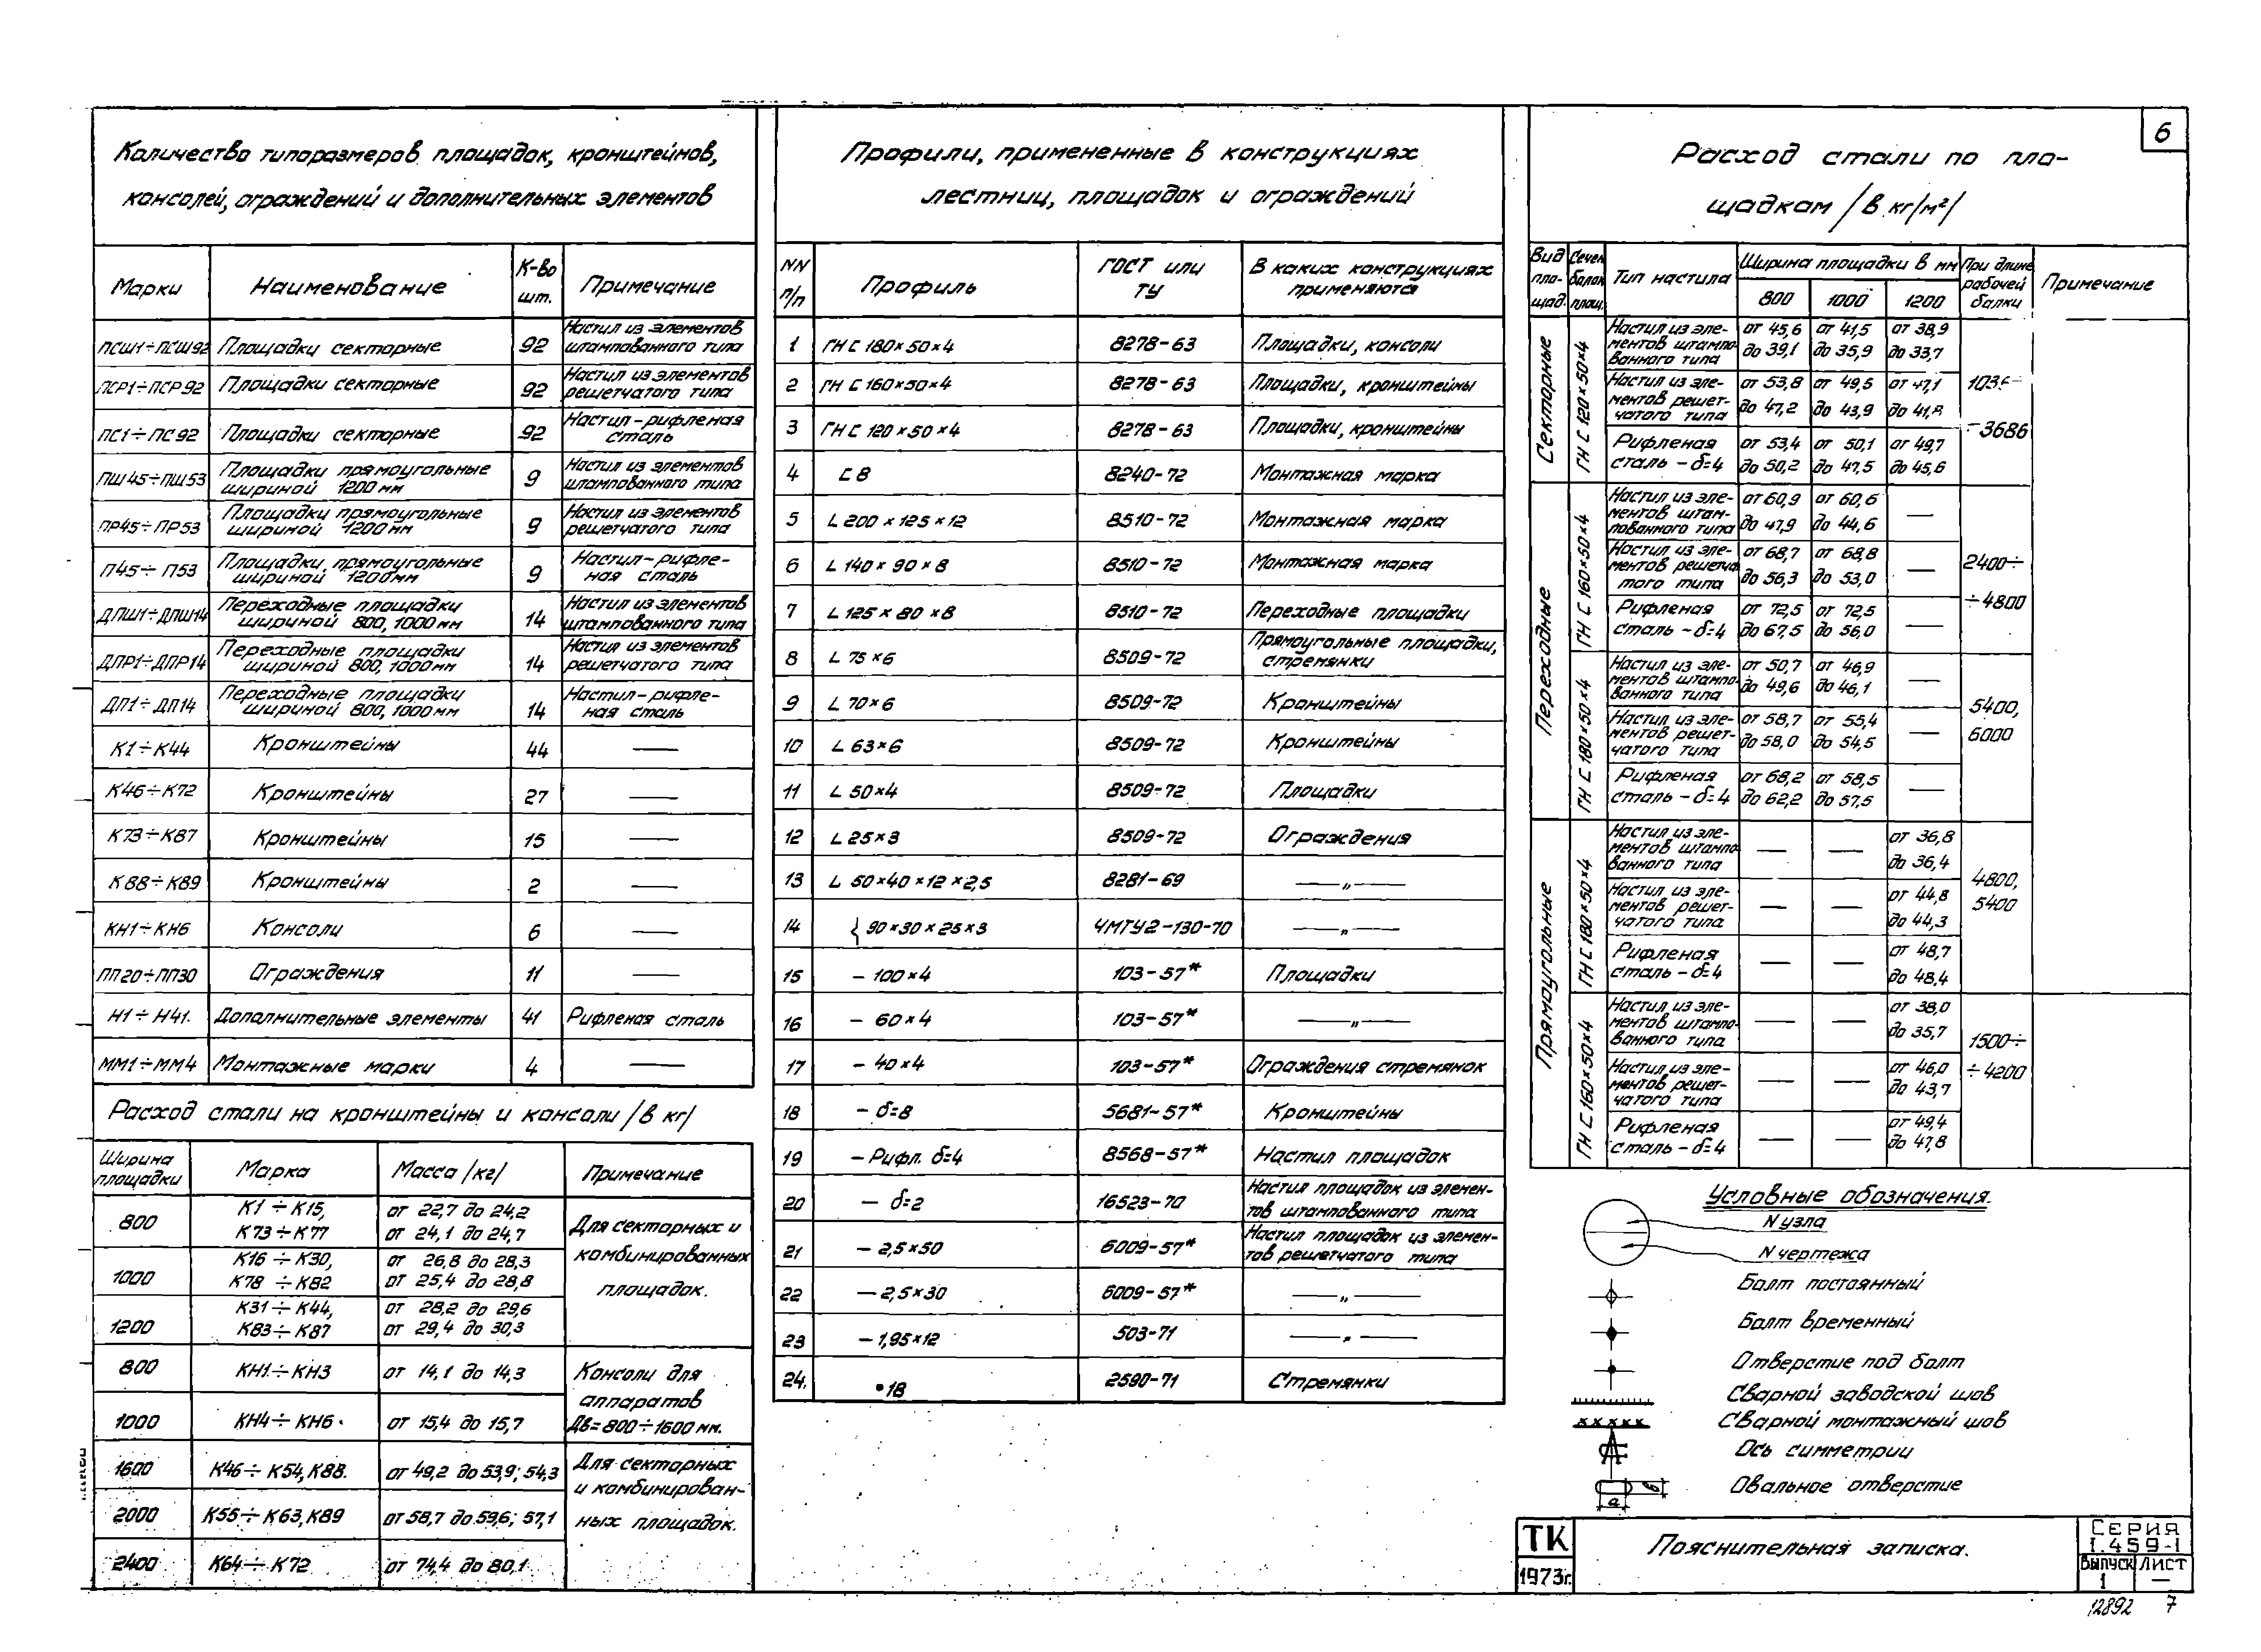 6
Количество типоразмеров площадок, кронштейнов,
консолей, ограждений и дополнительных элементов
Марки Наименование К-во шт. Примечание
ПСШ1÷ПСШ92 Площадки секторные 92 Настил из элементов штампованного типа
ПСР1÷ПСР92 Площадки секторные 92 Настил из элементов решетчатого типа
ПС1÷ПС92 Площадки секторные 92 Настил-рифленая сталь
ПШ45÷ПШ53 Площадки прямоугольные шириной 1200мм 9 Настил из элементов штампованного типа
ПР45÷ПР53 Площадки прямоугольные шириной 1200мм 9 Настил из элементов решетчатого типа
П45÷П53 Площадки прямоугольные шириной 1200мм 9 Настил-рифленая сталь
ДПШ1÷ДПШ14 Переходные площадки шириной 800, 1000мм 14 Настил из элементов штампованного типа
ДПР1÷ДПР14 Переходные площадки шириной 800, 1000мм 14 Настил из элементов решетчатого типа
ДП1÷ДП14 Переходные площадки шириной 800, 1000мм 14 Настил-рифленая сталь
К1÷К44 Кронштейны 44 —
К46÷К72 Кронштейны 27 —
К73÷К87 Кронштейны 15 —
К88÷К89 Кронштейны 2 —
КН1÷КН6 Консоли 6 —
ПП20÷ПП30 Ограждения 11 —
Н1÷Н41. Дополнительные элементы 41 Рифленая сталь
ММ1÷ММ4 Монтажные марки 4 —
Расход стали на кронштейны и консоли /в кг/
Ширина площадки Марка Масса /кг/ Примечание
800 К1÷К15, К73÷К77 от 22,7 до 24,2 от 24,1 до 24,7
1000 К16÷К30, К78÷К82 от 26,8 до 28,3 от 25,4 до 28,8
1200 К31÷К44, К83÷К87 от 28,2 до 29,6 от 29,4 до 30,3
Для секторных и комбинированных площадок.
800 КН1÷КН3 от 14,1 до 14,3
1000 КН4÷КН6 от 15,4 до 15,7
Консоли для аппаратов Дв=800÷1600мм.
1600 К46÷К54, К88. от 49,2 до 53,9; 54,3
2000 К55÷К63, К89 от 58,7 до 59,6; 57,1
2400 К64÷К72 от 74,4 до 80,1
Для секторных и комбинированных площадок.
Профили, примененные в конструкциях
лестниц, площадок и ограждений
NN п/п Профиль ГОСТ или ТУ В каких конструкциях применяются
1 ГН С 180×50×4 8278-63 Площадки, консоли
2 ГН С 160×50×4 8278-63 Площадки, кронштейны
3 ГН С 120×50×4 8278-63 Площадки, кронштейны
4 С 8 8240-72 Монтажная марка
5 L 200×125×12 8510-72 Монтажная марка
6 L 140×90×8 8510-72 Монтажная марка
7 L 125×80×8 8510-72 Переходные площадки
8 L 75×6 8509-72 Прямоугольные площадки, стремянки
9 L 70×6 8509-72 Кронштейны
10 L 63×6 8509-72 Кронштейны
11 L 50×4 8509-72 Площадки
12 L 25×3 8509-72 Ограждения
13 L 50×40×12×2,5 8281-69 —„—
14 { 90×30×25×3 ЧМТУ2-130-70 —„—
15 – 100×4 103-57* Площадки
16 – 60×4 103-57* —„—
17 – 40×4 103-57* Ограждения стремянок
18 – δ=8 5681-57* Кронштейны
19 – Рифл. δ=4 8568-57* Настил площадок
20 – δ=2 16523-70 Настил площадок из элементов штампованного типа
21 – 2,5×50 6009-57* Настил площадок из элементов решетчатого типа
22 – 2,5×30 6009-57* —„—
23 – 1,95×12 503-71 —„—
24. •18 2590-71 Стремянки
Расход стали по пло-
щадкам /в кг/м²/
Вид площад. Сечен. балок площ. Тип настила Ширина площадки в мм 800 1000 1200 При длине рабочей балки Примечание
Секторные
ГН С 120×50×4
Настил из элементов штампованного типа от 45,6 до 39,1 от 41,5 до 35,9 от 38,9 до 33,7
Настил из элементов решетчатого типа от 53,8 до 47,2 от 49,5 до 43,9 от 47,1 до 41,8
Рифленая сталь – δ=4 от 53,4 до 50,2 от 50,1 до 47,5 от 49,7 до 45,6
÷3686
Переходные
ГН С 160×50×4
Настил из элементов штампованного типа от 60,9 до 47,9 от 60,6 до 44,6 —
Настил из элементов решетчатого типа от 68,7 до 56,3 от 68,8 до 53,0 —
Рифленая сталь – δ=4 от 72,5 до 67,5 от 72,5 до 56,0 —
2400÷
÷4800
ГН С 180×50×4
Настил из элементов штампованного типа от 50,7 до 49,6 от 46,9 до 46,1 —
Настил из элементов решетчатого типа от 58,7 до 58,0 от 55,4 до 54,5 —
Рифленая сталь – δ=4 от 68,2 до 62,2 от 58,5 до 57,5 —
5400,
6000
Прямоугольные
ГН С 180×50×4
Настил из элементов штампованного типа — — от 36,8 до 36,4
Настил из элементов решетчатого типа — — от 44,8 до 44,3
Рифленая сталь – δ=4 — — от 48,7 до 48,4
4800,
5400
ГН С 160×50×4
Настил из элементов штампованного типа — — от 38,0 до 35,7
Настил из элементов решетчатого типа — — от 46,0 до 43,7
Рифленая сталь – δ=4 — — от 49,4 до 47,8
1500÷
÷4200
Условные обозначения.
N узла
N чертежа
Болт постоянный
Болт временный
Отверстие под болт
Сварной заводской шов
Сварной монтажный шов
Ось симметрии
Овальное отверстие
а
в
ТК
1973г.
Пояснительная записка.
Серия
1.459-1
Выпуск Лист
1 —
12892 7